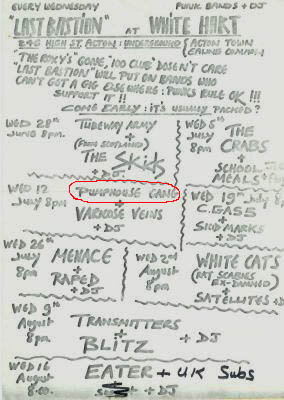 EVERY WEDNESDAY PUNK BANDS + DJ
"LAST BASTION" AT WHITE HART
246 HIGH ST. ACTON: UNDERGROUND {ACTON TOWN
EALING COMMON
"THE ROXY'S" GONE, 100 CLUB DOSEN'T CARE
"LAST BASTION" WILL PUT ON BANDS WHO
CAN'T GET A GIG ELSEWHERE: PUNKS RULE OK !!!
SUPPORT IT !!
COME EARLY: IT'S USUALLY PACKED?
WED 28TH
JUNE 8pm.
TUBEWAY ARMY
+
(FROM SCOTLAND)
THE SKids
+ DJ.
WED 5TH
July
8pm
THE
CRABS
+
SCHOOL
MEALS +
WED 12
July 8pm
PUMPHOUSE GANG
+
VARICOSE VEINS
+ DJ
WED 19TH July 8pm
C.GAS 5
+
SKID MARKS
+ DJ
WED 26TH
July
8pm
MENACE
+
RAPED
+ DJ
WED 2nd
August
8pm
WHITE CATS
(RAT SCABIES
EX-DAMNED)
+
SATELLITES + DJ
WED 9TH
August
8pm
TRANSMITTERS
+
BLITZ
+ DJ
WED 16
August
8.00.
EATER + UK Subs
+ DJ